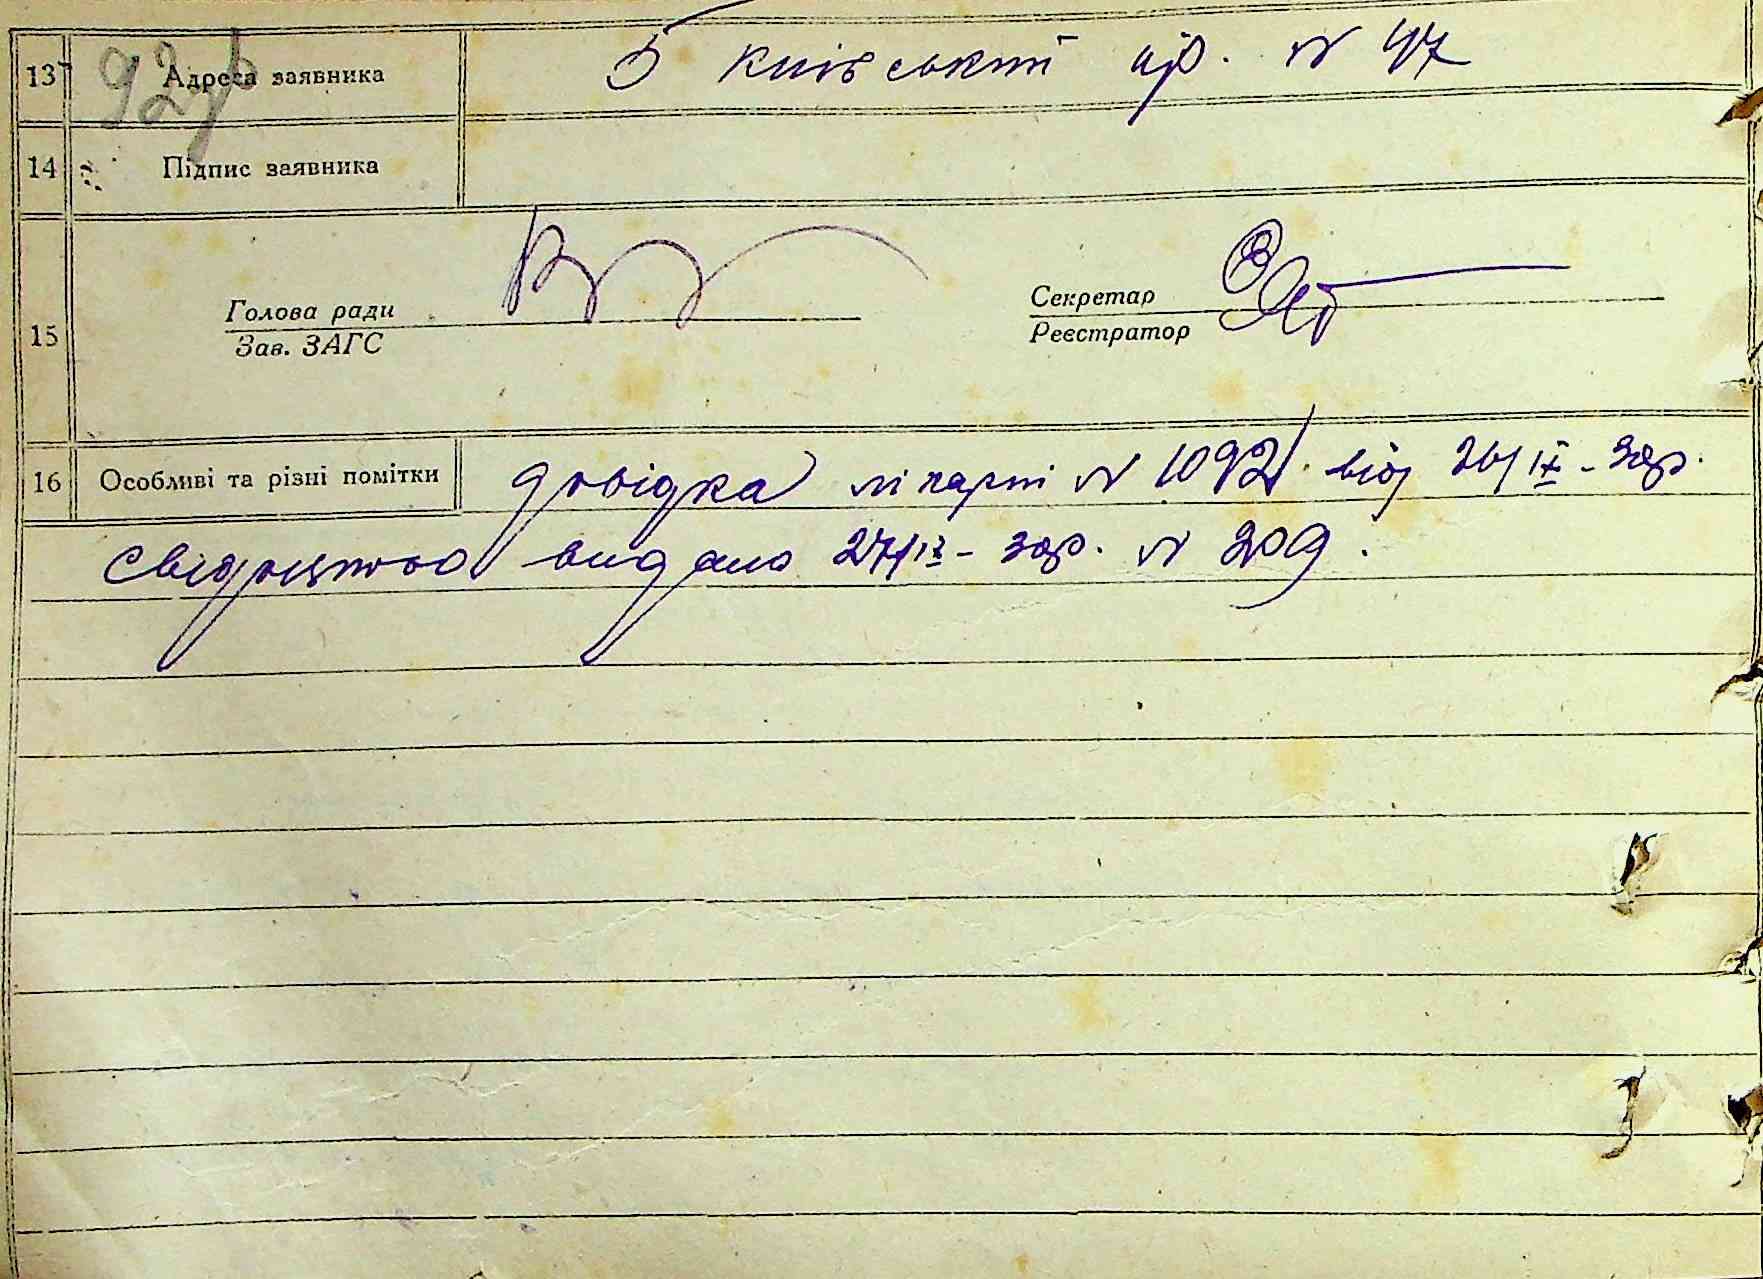 13 Адреса заявника 5 Київський пр. № 47
92
14 Підпис заявника
15 Голова ради
Зав. ЗАГС
Секретар
Реєстратор
16 Особливі та різні помітки довідка лікарні № 1092 від 26/IX - 39р.
свідоцтво видано 27/IX - 39р. № 209.